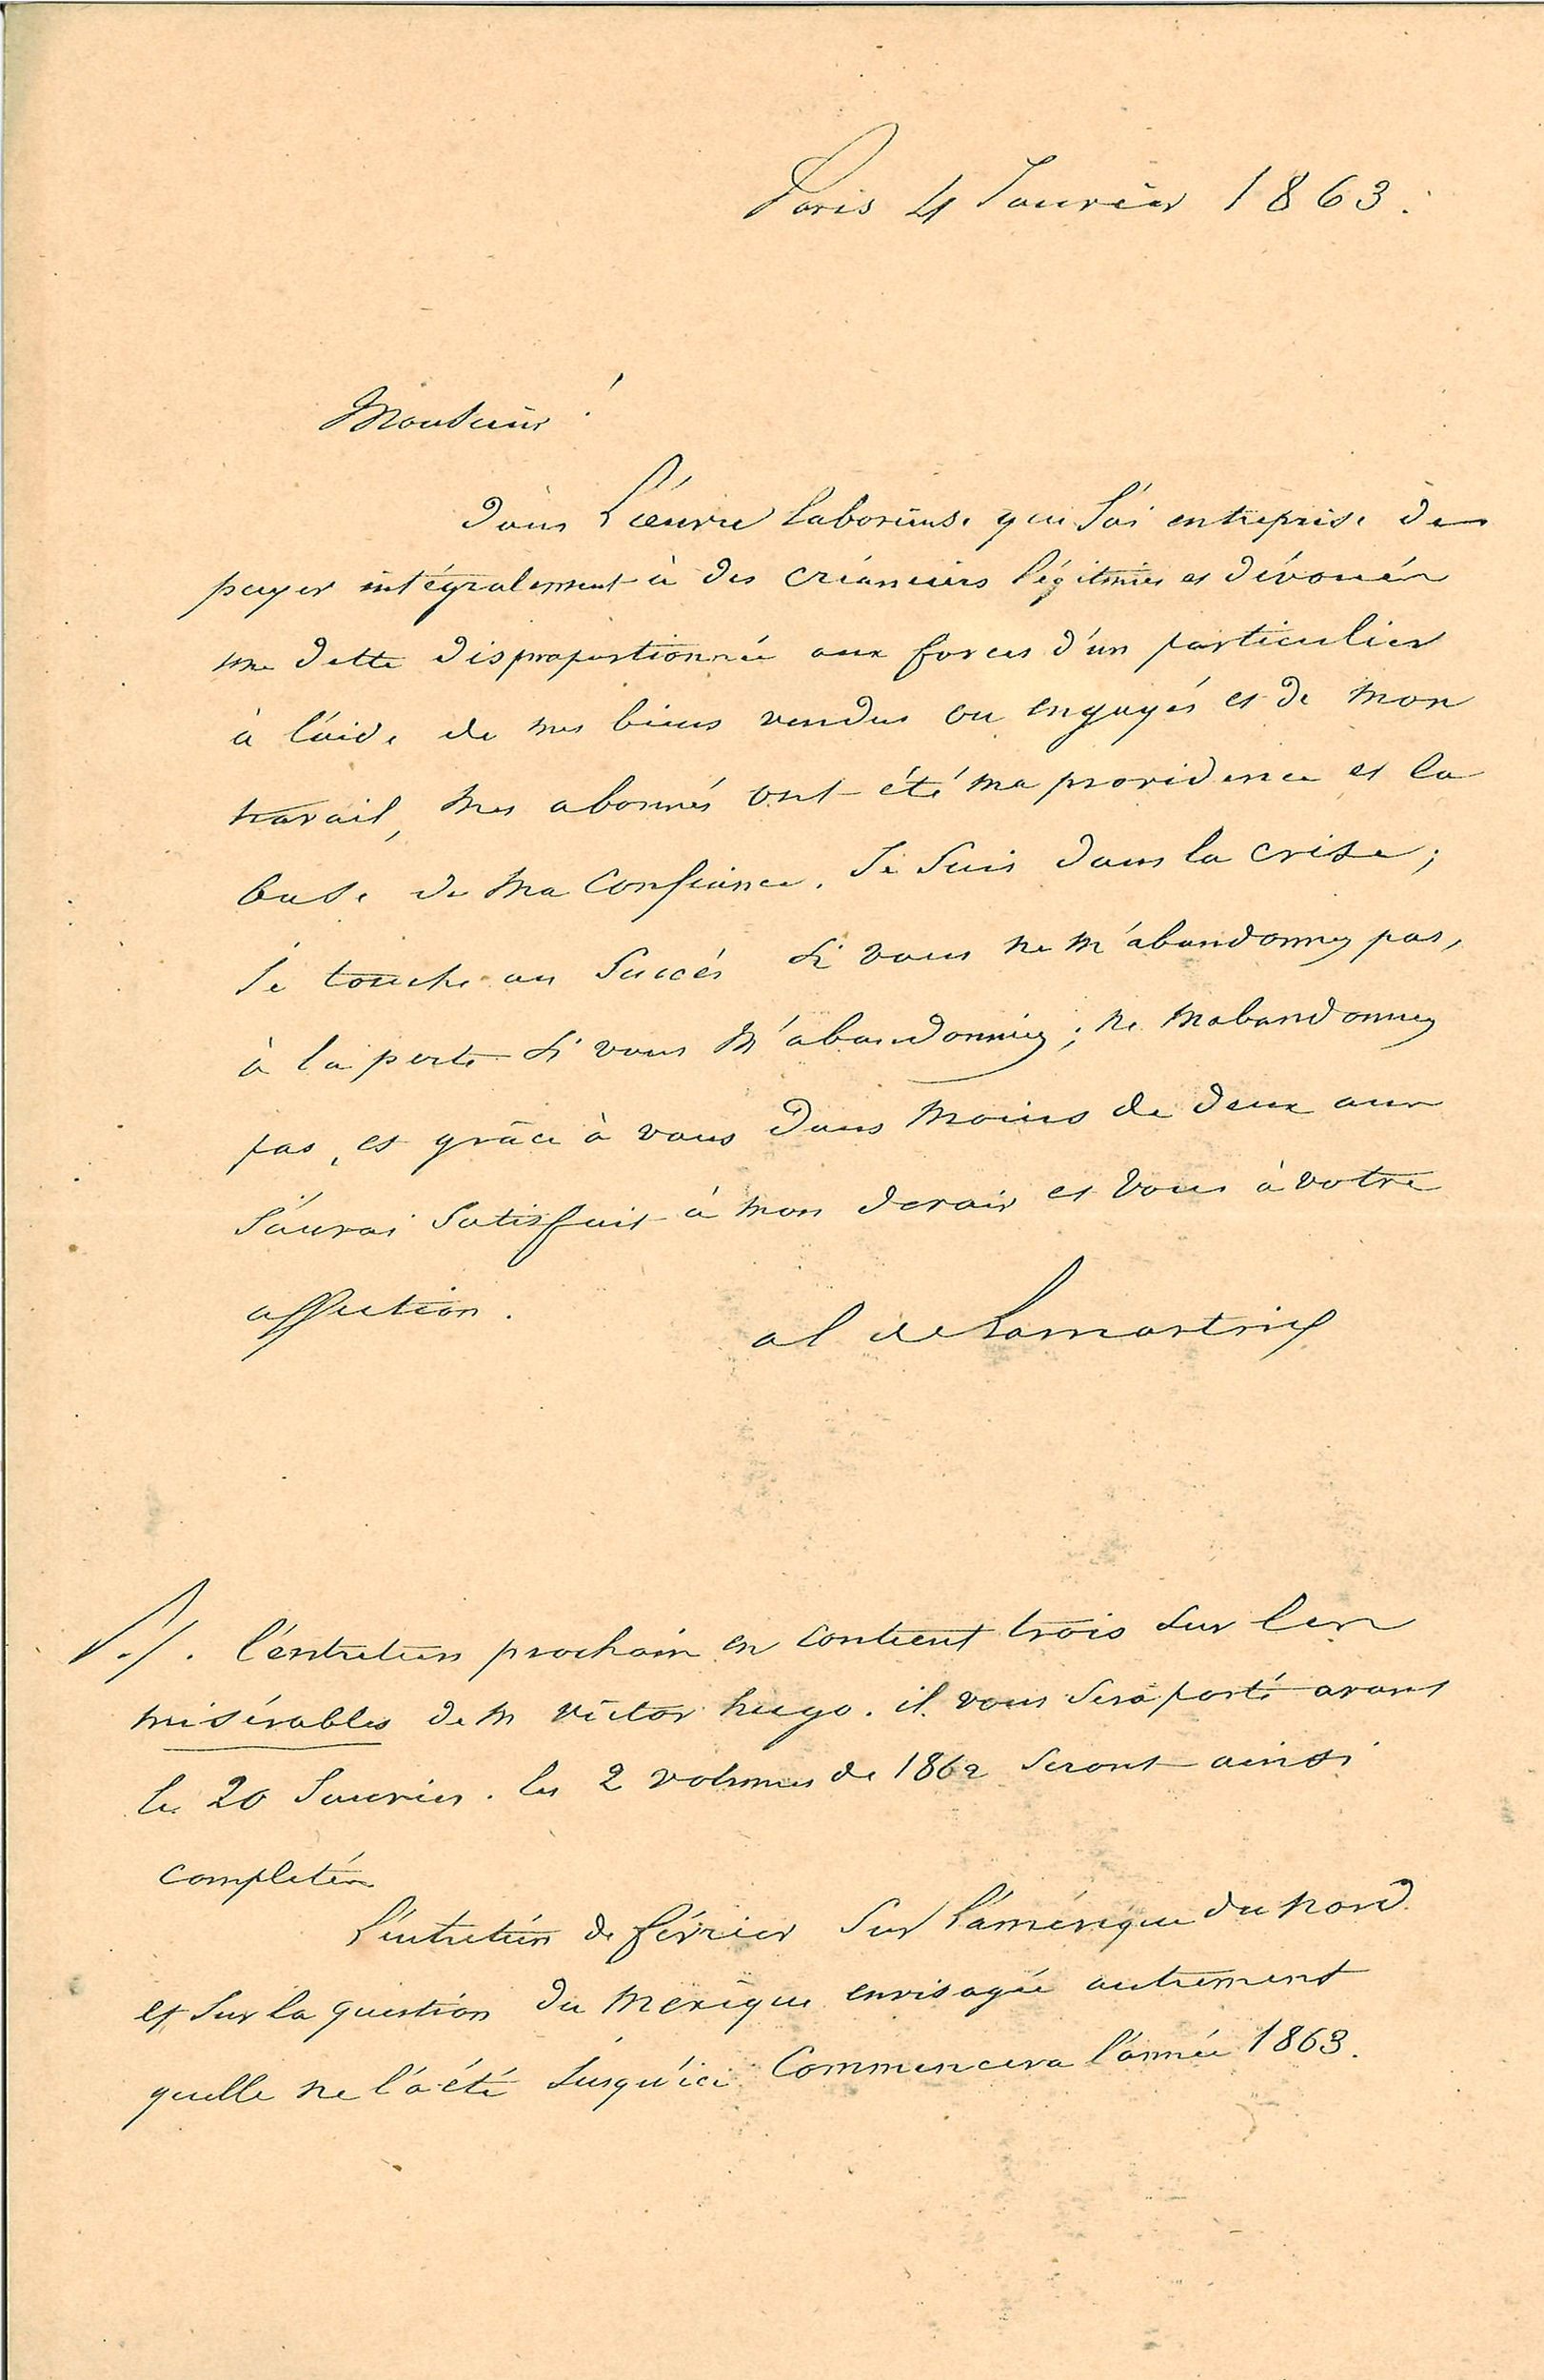 Paris 4 Janvier 1863.
Monsieur !
dans l'œuvre laborieuse que j'ai entreprise de
payer intégralement à des créanciers légitimes et dévoués
une dette disproportionnée aux forces d'un particulier
à l'aide de mes biens vendus ou engagés et de mon
travail, mes abonnés ont été ma providence et la
base de ma confiance. Je suis dans la crise ;
je touche au succès si vous ne m'abandonnez pas,
à la perte si vous m'abandonniez ; ne m'abandonnez
pas, et grâce à vous dans moins de deux ans
j'aurai satisfait à mon devoir et vous à votre
affection.
al de Lamartine
P.S. l'entretien prochain en contient trois sur les
misérables de M victor hugo. il vous sera porté avant
le 20 Janvier. les 2 volumes de 1862 seront ainsi
completés
L'entretien de février sur l'amérique du nord
et sur la question du Mexique envisagée autrement
quelle ne l'a été jusqu'ici commencera l'année 1863.